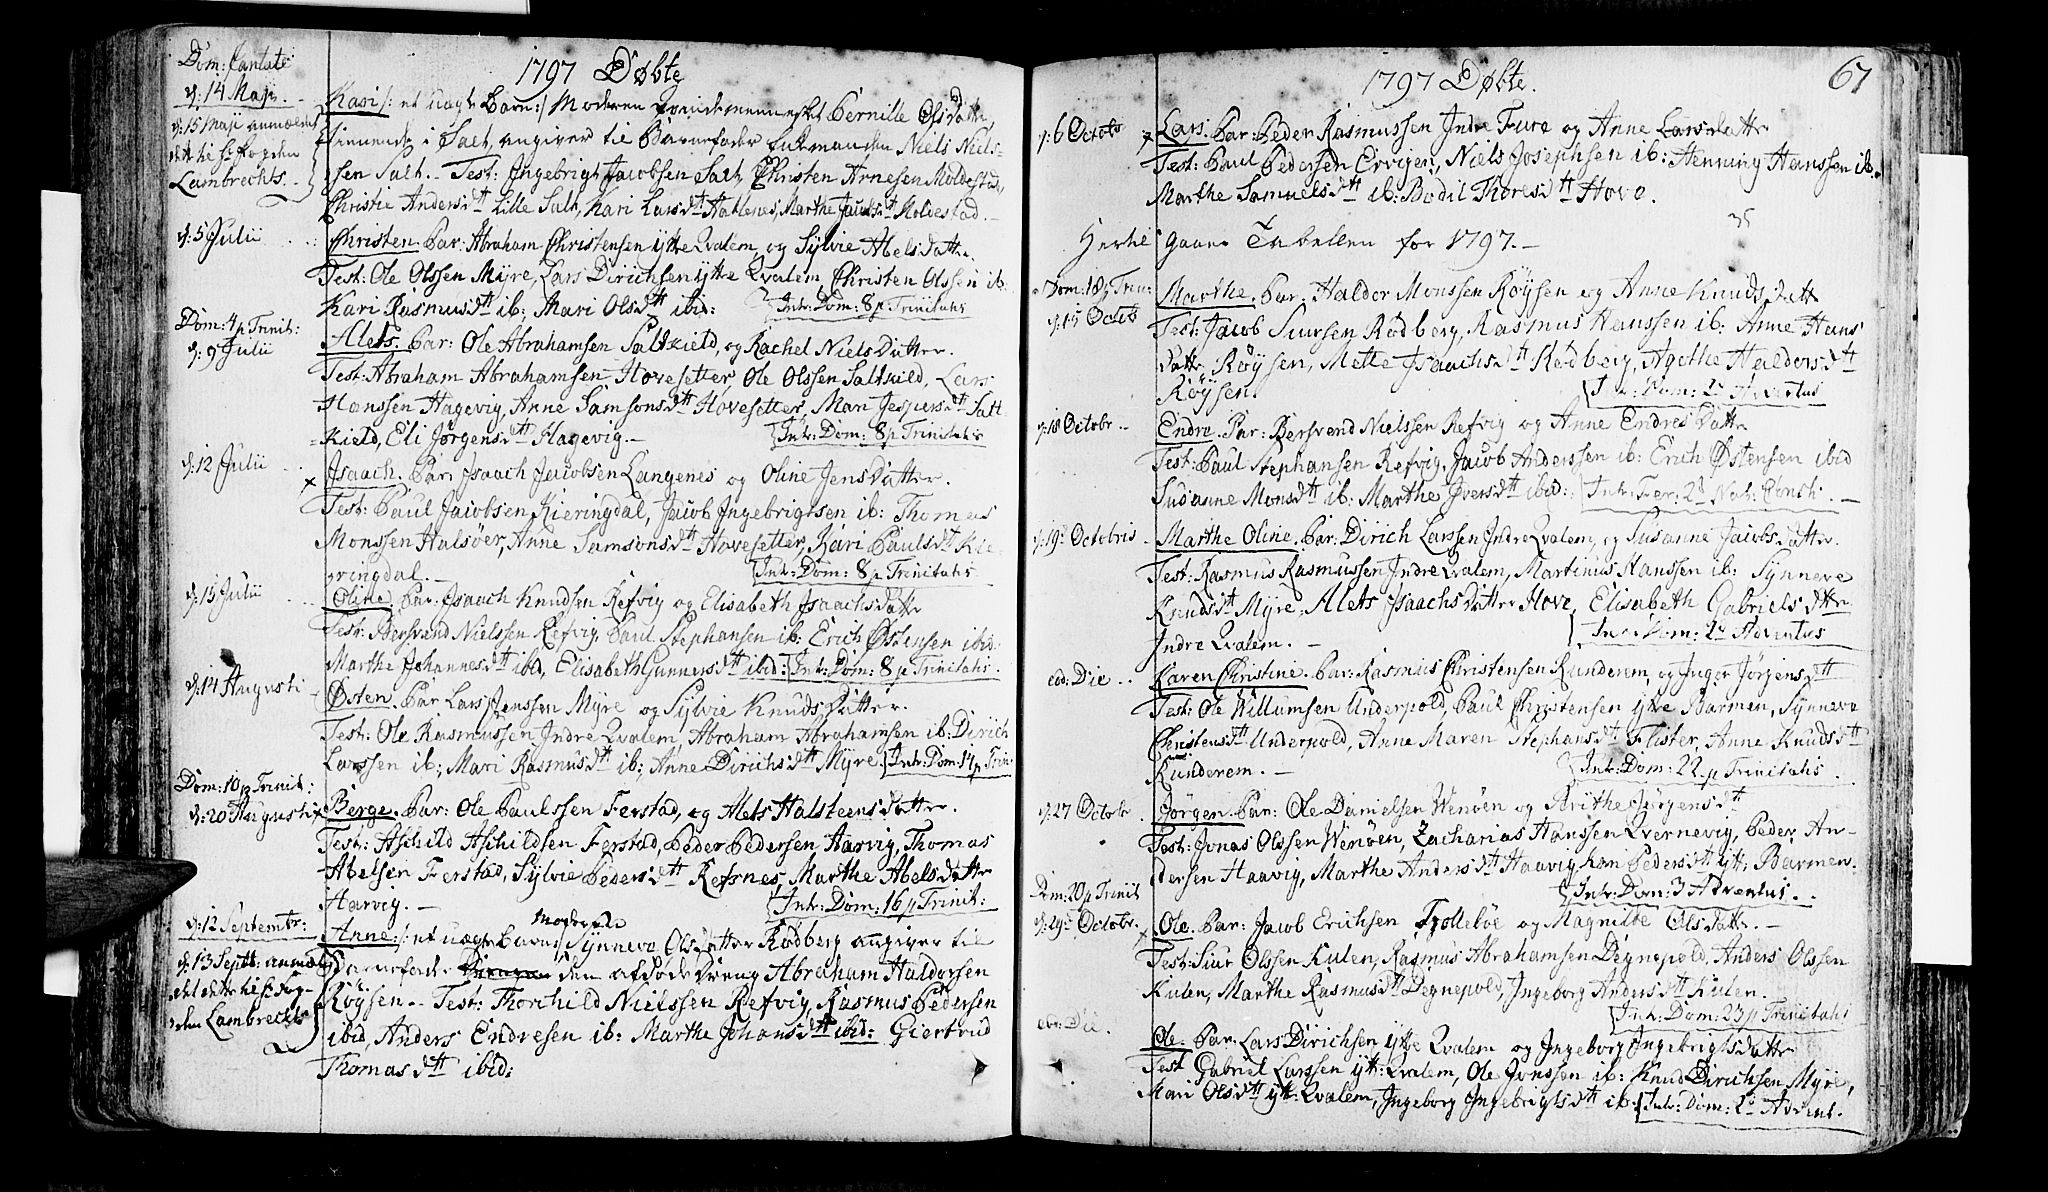 1797 Døbte
Dom: Cantate
d: 14 Maji
Kari /: et uægte Barn :/ Moderen Qvindemennesket Pernille OlsDatter,
d: 15 Maji anmeldet
dette hr: Fogden
Lambrechts.
tienende i Salt, angiver til Barnefader Fulmanden Niels Niels-
sen Salt. Test: Ingebrigt Jacobsen Salt, Christen Arnesen Moldestad,
Christie Andersdtt Lille Salt, Kari Larsdtt Hatlenes, Marthe Jacobsdtt Moldestad.
d: 5 Julii
Christen. Par: Abraham Christensen ytre Qvalem, og Sylvie AbelsDatter.
Test: Ole Olssen Myre, Lars Dirichsen ytre Qvalem, Christen Olssen ib:
Kari Rasmusdtt ib: Mari Olsdtt ibid: Intr: Dom: 8 p Trinitatis
Dom: 4 p Trinit:
d: 9 Julii
Alets. Par: Ole Abrahamsen Saltkield, og Rachel NielsDatter.
Test: Abraham Abrahamsen Hovesetter, Ole Olssen Saltkield, Lars
Hanssen Hagevig, Anne Samsonsdtt Hovesetter, Mari Jespersdtt Salt-
kield, Eli Jørgensdtt Hagevig. Intr: Dom: 8 p Trinitatis
d: 12 Julii
x Isaach. Par: Isaach Jacobsen Langenes og Oline JensDatter.
Test: Paul Jacobsen Kieringdal, Jacob Ingebrigtsen ib: Thomas
Monssen Halsøer, Anne Samsonsdtt Hovesetter, Kari Paulsdtt Kie-
ringdal. Intr: Dom: 8 p Trinitatis
d: 15 Julii
Oline. Par: Isaach Knudsen Refvig og Elisabeth IsaachsDatter
Test: Bersvend Nielssen Refvig, Paul Stephansen ib: Erich Østensen ibid
Marthe Johannesdtt ibid, Elisabeth Gunnersdtt ibid: Intr: Dom: 8 p Trinitatis.
d: 14 Augusti
Østen. Par Lars Jenssen Myre og Sylvie KnudsDatter.
Test: Ole Rasmussen Indre Qvalem, Abraham Abrahamsen ib: Dirich
Larssen ib: Mari Rasmusdtt ib: Anne Dirichsdtt Myre. Intr: Dom: 14 p Trin:
Dom: 10 p Trinit:
d: 20 Augusti
x Berge. Par: Ole Paulssen Ferstad, og Alets HalsteensDatter.
Test: Aschild Aschildsen Ferstad, Peder Pedersen Aarvig, Thomas
Abelsen Ferstad, Sylvie Pedersdtt Refsnes, Marthe AbelsDatter
Aarvig. Intr: Dom: 16 p Trinit:
d: 12 Septembr:
Anne /: et uægte barn :/ Moderen Synneve OlsDatter Rødberg angiver til
d: 13 Septb: anmel-
det dette hr: Fog-
den Lambrechts
Barnefader den afdøde Dreng Abraham Haldorsen
Røysen. Test: Thorchild Nielssen Refvig, Rasmus Pedersen
ibid, Anders Endresen ib: Marthe Johansdtt ibid: Giertrud
Thomasdtt ibid:
1797 Døbte.
67
d: 6 Octobr
x Lars. Par: Peder Rasmussen Indre Fure og Anne LarsDatter
Test: Paul Pedersen Ervigen, Niels Josephsen ib: Henning Hanssen ib.
Marthe Samuelsdtt ib: Bodil Thoresdtt Hove.
35
Hertil gaaer Tabellen for 1797.
Dom: 18 p Trin:
d: 15 Octob
Marthe. Par. Haldor Monssen Røysen og Anne KnudsDatt
Test: Jacob Siursen Rødberg, Rasmus Hanssen ib: Anne Hans
Datter Røysen, Mette Isaachsdtt Rødberg, Agethe Haldorsdtt
Røysen. Intr: Dom: 1 Adventus
d: 18 Octobr
Endre. Par: Bersvend Nielssen Refvig og Anne EndresDatter
Test: Paul Stephansen Refvig, Jacob Anderssen ib: Erich Østensen ibid
Susanne Monsdtt ib: Marthe Iversdtt ibid: Intr: Fer: 2d Nat: Christi.
d: 19 Octobris
Marthe Oline. Par: Dirich Larssen Indre Qvalem, og Susanne JacobsDatter.
Test: Rasmus Rasmussen Indre Qvalem, Martinus Hanssen ib: Synneve
Knudsdtt Myre, Alets IsaachsDatter Hove, Elisabeth Gabrielsdtter
Indre Qvalem. Intr: Dom: 1 Adventus
eod: Die
Karen Christine. Par: Rasmus Christensen Runderem, og Inger Jørgensdtt
Test: Ole Willumsen Underpold, Paul Christensen ytre Barmen, Synneve
Christensdtt Underpold, Anne Maren Stephansdtt Flister, Anne Knudsdtt
Runderem. Intr: Dom: 22 p Trinitatis.
d: 27 Octobr
Jørgen Par: Ole Danielsen Wenøen og Brithe Jørgensdtt
Test: Jonas Olssen Wenøen, Zacharias Hanssen Qvernevig, Peder An-
dersen Haavig, Marthe Andersdtt Haavig, Kari Pedersdtt ytt: Barmen.
Intr: Dom: 3 Adventus.
Dom: 20 p Trinit
d: 29 Octobr.
x Ole. Par: Jacob Erichsen Tyttebøe og Magnilde OlsDatter.
Test: Siur Olssen Kulen, Rasmus Abrahamsen Degnepold, Anders Olssen
Kulen, Marthe Rasmusdtt Degnepold, Ingeborg Andersdtt Kulen.
Intr: Dom: 23 p Trinitatis
eod: Die.
Ole. Par. Lars Dirichsen ytre Qvalem og Ingeborg IngebrigtsDatter
Test Gabriel Larssen ytt: Qvalem, Ole Jonssen ib: Knud Dirichsen Myre,
Mari Olsdtt ytt: Qvalem, Ingeborg Ingebrigtsdtt ib: Intr: Dom: 1 Advent.